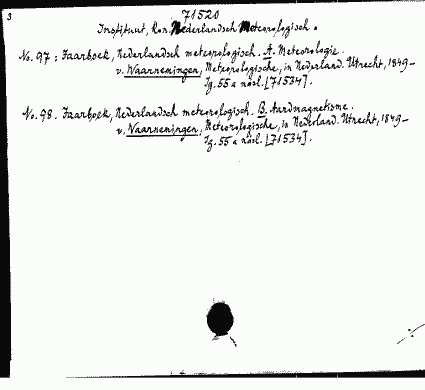 3
71520
Instituut, Kon. Nederlandsch Meteorologisch.
No. 97: Jaarboek, Nederlandsch meteorologisch. A. Meteorologie.
v. Waarnemingen, Meteorologische, in Nederland. Utrecht, 1849–
Jg. 55 a násl. [71534].
No. 98. Jaarboek, Nederlandsch meteorologisch. B. Aardmagnetisme.
v. Waarnemingen, Meteorologische, in Nederland. Utrecht, 1849–
Jg. 55 a násl. [71534].